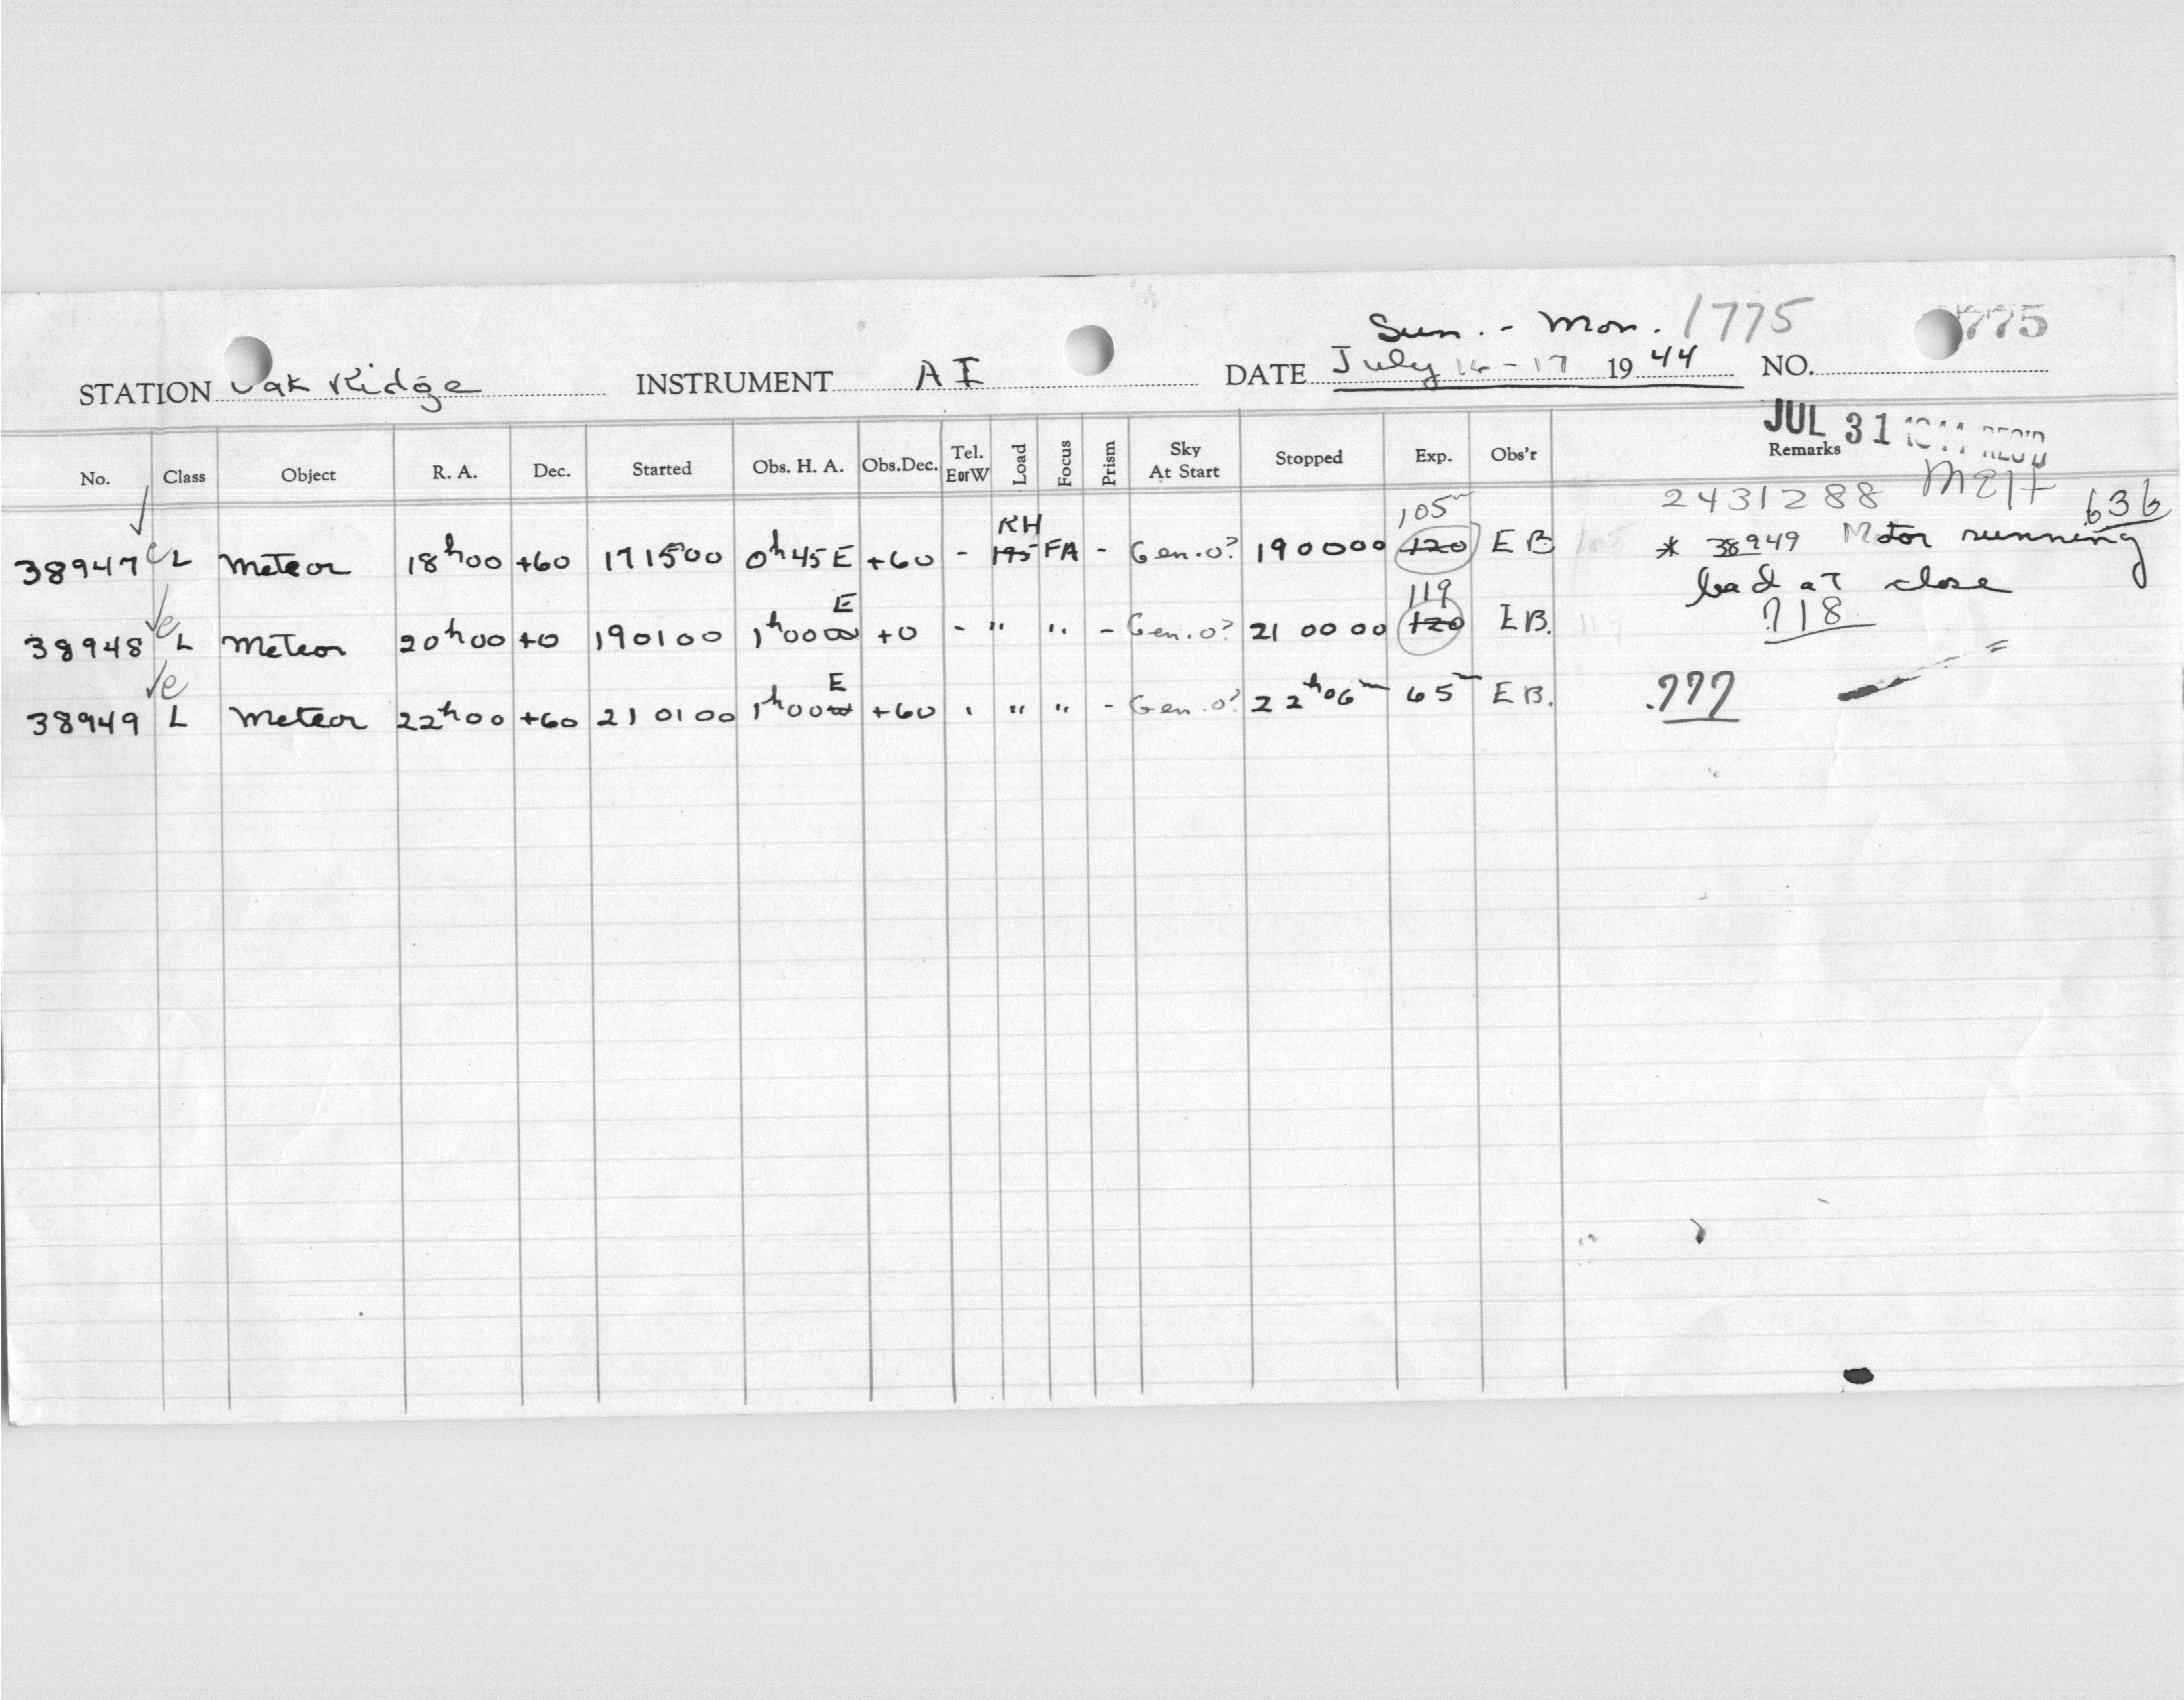 Sun. - Mon. 1775 775
STATION Oak Ridge INSTRUMENT AI DATE July 16-17 1944 NO.
JUL 31 1944 REC'D
No. Class Object R. A. Dec. Started Obs. H. A. Obs.Dec. Tel. E or W Load Focus Prism Sky At Start Stopped Exp. Obs'r Remarks
2431288 636
38947 e L Meteor 18h00 +60 171500 0h45 E +60 - RH 195 FA - Gen. 0? 190000 105m 120 E B * 38949 Motor running
bad at close
38948 e L Meteor 20h00 +0 190100 1h00 E 00 +0 - " " - Gen. 0? 210000 119 120 E B. .718
38949 e L Meteor 22h00 +60 210100 1h00 E +60 " " - Gen. 0? 22h06m 65m E B. .777